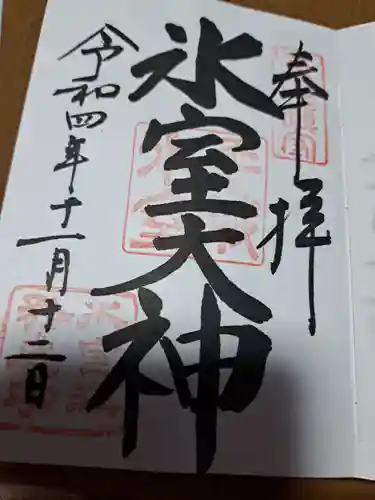 奉拝
氷室大神
令和四年十一月十二日